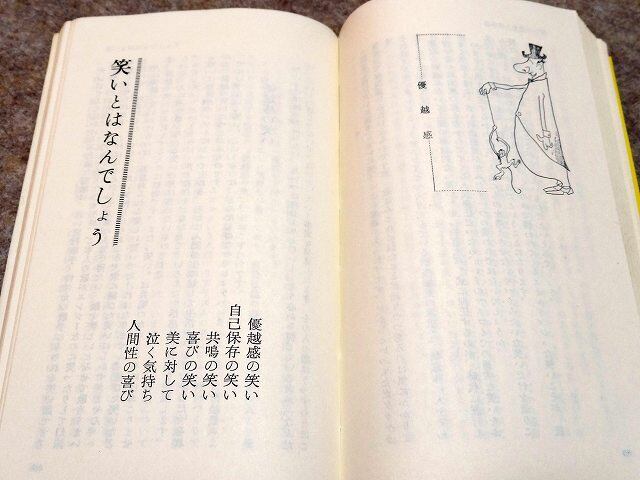 優越感
優越感の笑い
自己保存の笑い
共鳴の笑い
喜びの笑い
美に対して
泣く気持ち
人間性の喜び
笑いとはなんでしょう